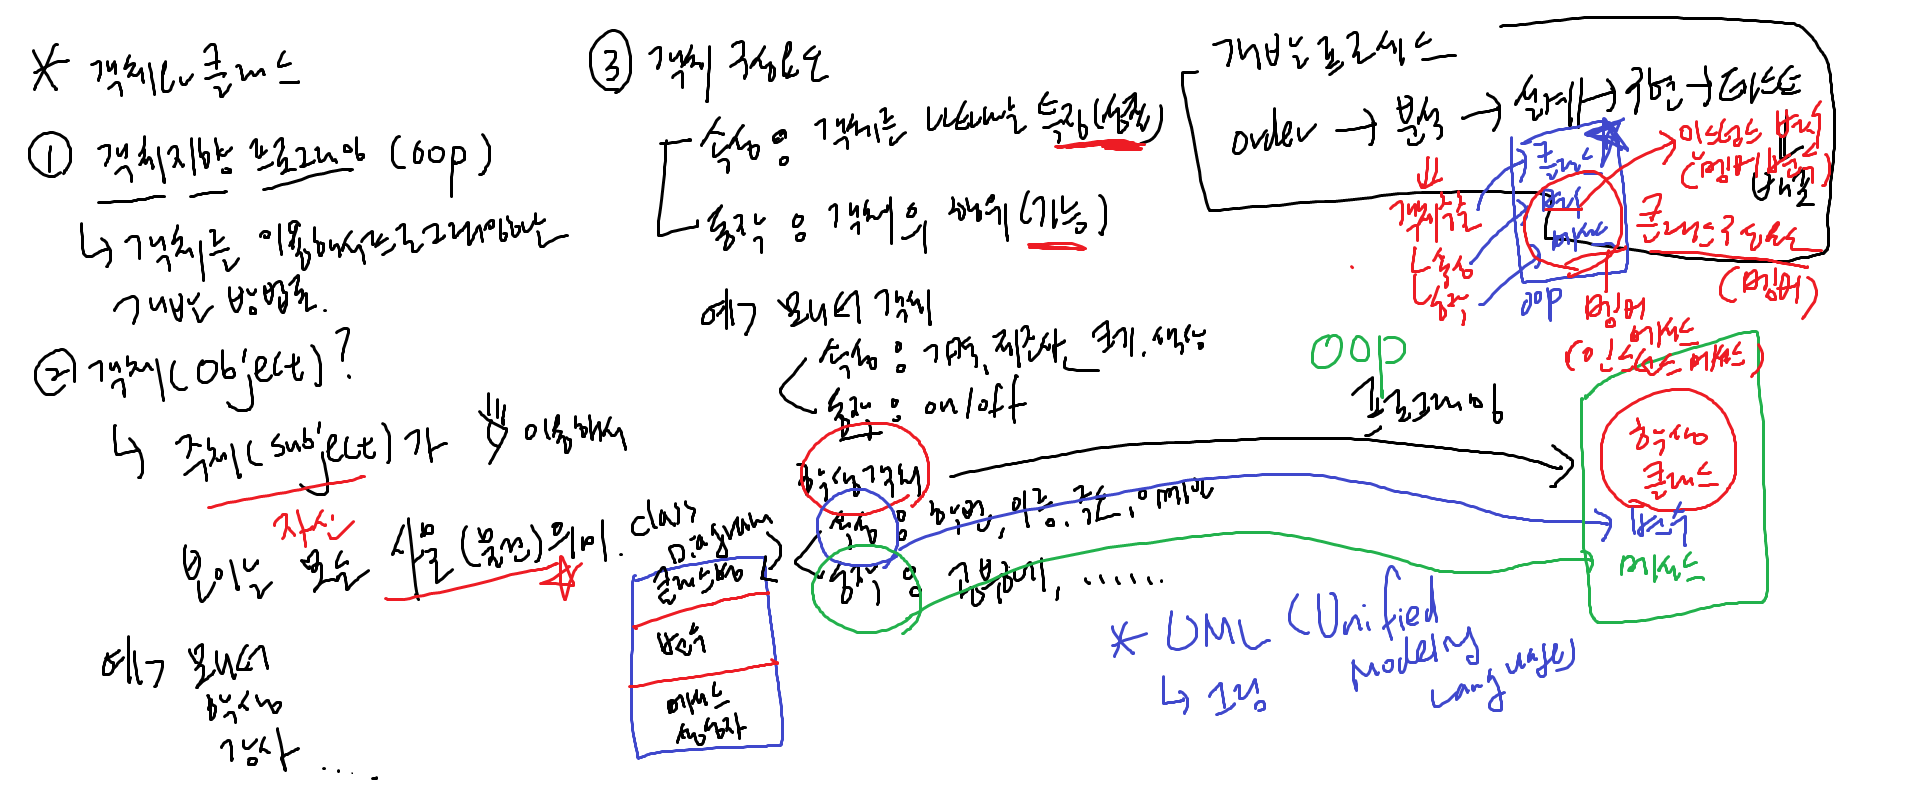 * 객체와 클래스
① 객체지향 프로그래밍 (OOP)
↳ 객체를 이용해서 프로그래밍하는
개발 방법론.
② 객체(Object)?
↳ 주체(subject)가 이용해서
자신
보이는 모든 사물(물건)의미.
예> 모니터
학생
강사 .....
③ 객체 구성요소
속성 : 객체를 나타내는 특징(성질)
동작 : 객체의 행위(기능)
예> 모니터 객체
속성 : 가격, 제조사, 크기, 색상
동작 : on/off
학생객체
속성 : 학번, 이름, 주소, 이메일
동작 : 공부하기, ......
class
Diagram
클래스명
변수
메서드
생성자
개발프로세스
order → 분석 → 설계 → 구현 → 테스트
배포
객체추출
속성
동작
클래스
변수
메서드
OOP
인스턴스 변수
(멤버변수)
클래스구성요소
(멤버)
멤버
메서드
(인스턴스 메서드)
OOP
프로그래밍
학생
클래스
변수
메서드
* UML (Unified
Modeling
Language)
↳ 그림